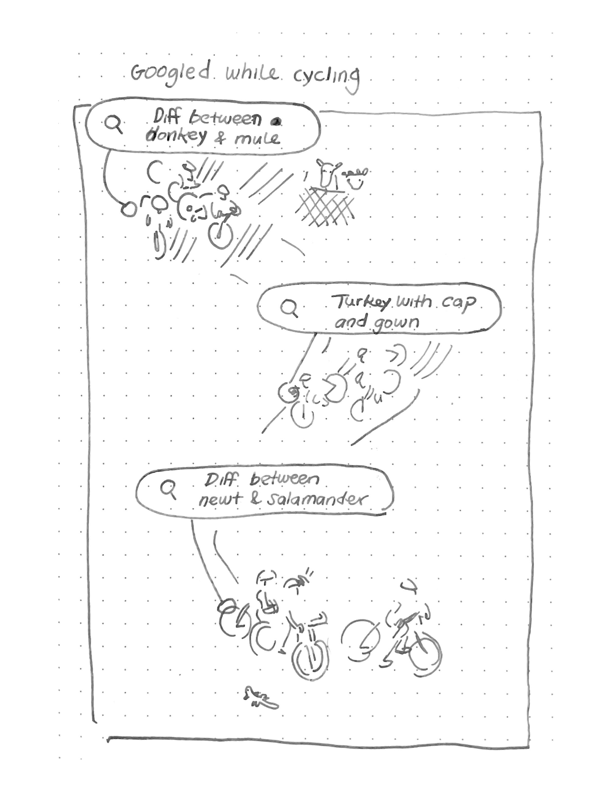 Googled while cycling
Diff between
donkey & mule
Turkey with cap
and gown
Diff between
newt & salamander